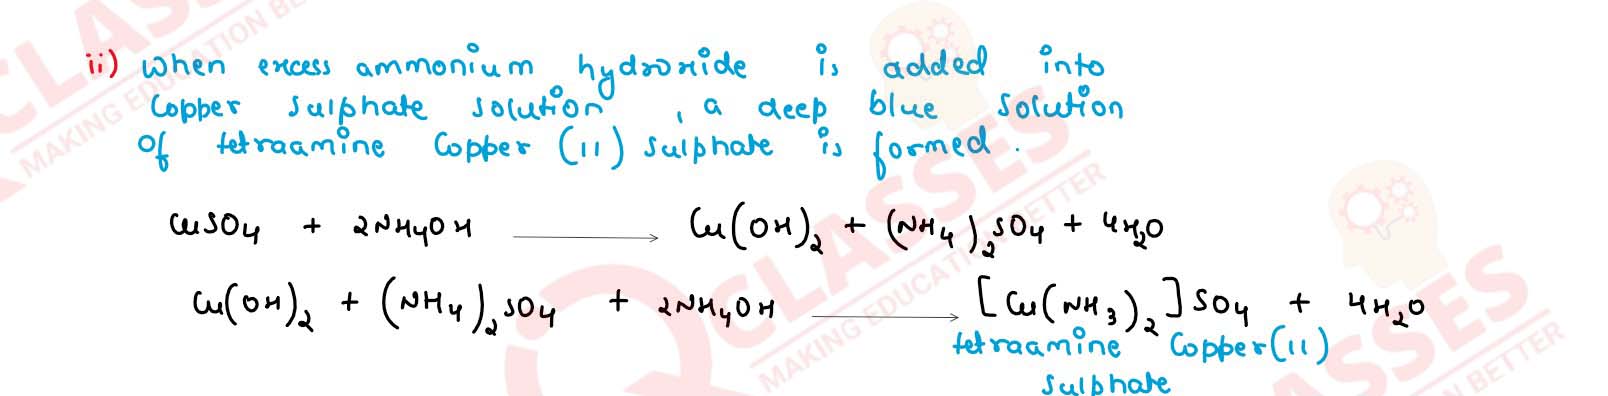 CLAS
MAKING EDUCATION BE
ii) When excess ammonium hydroxide is added into
Copper sulphate solution, a deep blue solution
of tetraamine Copper (II) sulphate is formed.
CuSO4 + 2NH4OH → Cu(OH)2 + (NH4)2SO4 + 4H2O
Cu(OH)2 + (NH4)2SO4 + 2NH4OH → [Cu(NH3)2]SO4 + 4H2O
tetraamine Copper(II)
sulphate
CLASSES
MAKING EDUCATION BETTER
ASSES
N BETTER